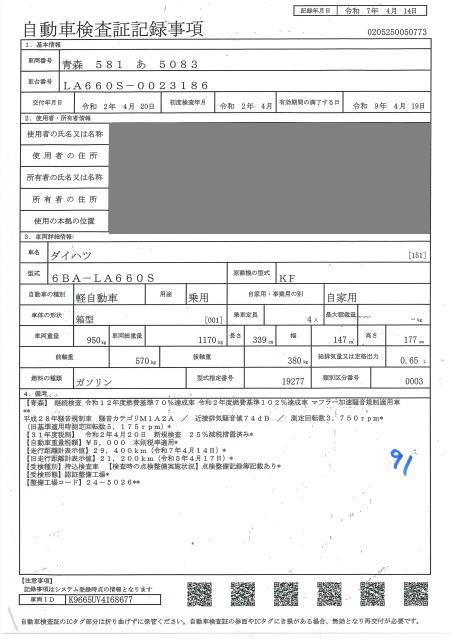 記録年月日 令和 7年 4月 14日
自動車検査証記録事項 0205250050773
1. 基本情報
車両番号 青森 581 あ 5083
車台番号 LA660S-0023186
交付年月日 令和 2年 4月 20日 初度検査年月 令和 2年 4月 有効期間の満了する日 令和 9年 4月 19日
2. 使用者・所有者情報
使用者の氏名又は名称
使用者の住所
所有者の氏名又は名称
所有者の住所
使用の本拠の位置
3. 車両詳細情報
車名 ダイハツ [151]
型式 6BA-LA660S 原動機の型式 KF
自動車の種別 軽自動車 用途 乗用 自家用・事業用の別 自家用
車体の形状 箱型 [001] 乗車定員 4人 最大積載量 - kg
車両重量 950kg 車両総重量 1170kg 長さ 339cm 幅 147cm 高さ 177cm
前軸重 570kg 後軸重 380kg 総排気量又は定格出力 0.65 L
燃料の種類 ガソリン 型式指定番号 19277 類別区分番号 0003
4. 備考
【青森】 継続検査 令和12年度燃費基準70%達成車 令和2年度燃費基準102%達成車 マフラー加速騒音規制適用車
**
平成28年騒音規制車 騒音カテゴリM1A2A / 近接排気騒音値74dB / 測定回転数3,750rpm*
(旧基準適用時測定回転数5,175rpm)*
【31年度税別】 令和2年4月20日 新規検査 25%減税措置済み*
【自動車重量税額】¥5,000 本則税率適用*
【走行距離計表示値】29,400km(令和7年4月14日)
【旧走行距離計表示値】21,200km(令和5年4月17日)*
【受検種別】持込検査車 【検査時の点検整備実施状況】点検整備記録簿記載あり*
【受検形態】認証整備工場*
【整備工場コード】24-5026**
91
【注意事項】
記録事項はシステム登録時点の情報となります
車両ID K9665UV4168677
自動車検査証のICタグ部分は折り曲げずに保管ください。自動車検査証の券面やICタグにき損がある場合、無効となり再交付が必要です。